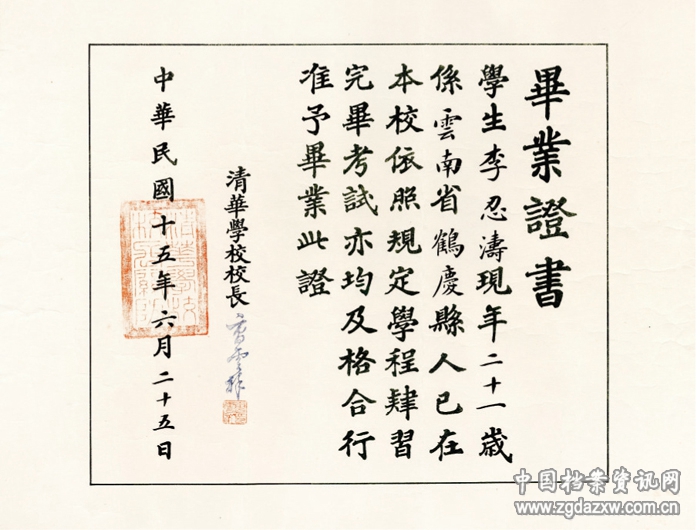 畢業證書
學生李忍濤現年二十一歲
係雲南省鶴慶縣人已在
本校依照規定學程肄習
完畢考試亦均及格合行
准予畢業此證
清華學校校長
中華民國十五年六月二十五日
中国档案资讯网
www.zgdazxw.com.cn